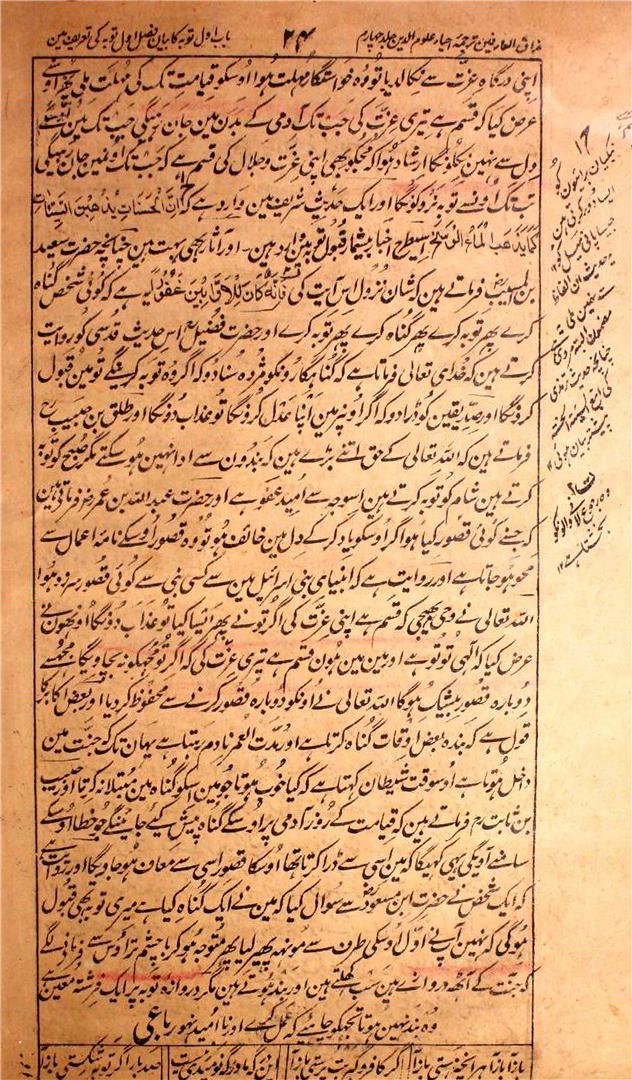 مذاق العارفین ترجمہ احیاء علوم الدین جلد چہارم ۲۴ باب اول توبہ کا بیان فصل اول توبہ کی تعریف مین
اپنی درگاہ عزّت سے نکالدیا تو وہ خواستگار مہلت ہوا اوسکو قیامت تک کی مہلت ملی پھر اوسنے
عرض کیا کہ قسم ہے تیری عزّت کی جب تک آدمی کے بدن مین جان رہیگی جب تک مین اُسکے
دل سے نہین نکلونگا ارشاد ہوا کہ مجکو بھی اپنی عزّت و جلال کی قسم ہے کہ جب تک اوسمین جان رہیگی
تب تک اُوسے توبہ نہ روکونگا اور ایک حدیث شریف مین وارد ہے کہ اِنَّ الْحَسَنَاتِ یُذْھِبْنَ السَّیِّئَاتِ
کَمَا یُذْھِبُ الْمَاءُ الْوَسَخَ اسیطرح اخبار بیشمار قبول توبہ مین وارد ہین۔ اور آثار بھی بہت ہین چنانچہ حضرت سعید
بن المسیب رض فرماتے ہین کہ شان نزول اس آیت کی فَاِنَّہٗ کَانَ لِلْاَوَّابِیْنَ غَفُوْرًا یہ ہے کہ کوئی شخص گناہ
کرے پھر توبہ کرے پھر گناہ کرے پھر توبہ کرے اور حضرت فضیل رح اس حدیث قدسی کو روایت
کرتے ہین کہ خدای تعالی فرماتا ہے کہ گناہگارونکو مژدہ سنا دو کہ اگر وہ توبہ کرینگے تو مین قبول
کرونگا اور صدّیقین کو ڈرا دو کہ اگر اونپر مین اپنا عدل کرونگا تو عذاب دونگا اور طلق بن حبیب رح
فرماتے ہین کہ اللہ تعالی کے حق اتنے بڑے ہین کہ بندون سے ادا نہین ہو سکتے مگر صبح کو توبہ
کرتے ہین شام کو توبہ کرتے ہین اسوجہ سے اُمید عفو ہے اور حضرت عبد اللہ بن عمر رض فرماتے ہین
کہ جسنے کوئی قصور کیا ہو اگر اوسکو یاد کرکے دل مین خائف ہو تو وہ قصور اوسکے نامۂ اعمال سے
محو ہو جاتا ہے اور روایت ہے کہ انبیای بنی اسرائیل مین سے کسی نبی سے کوئی قصور سرزد ہوا
اللہ تعالی نے وحی بھیجی کہ قسم ہے اپنی عزّت کی اگر تونے پھر ایسا کیا تو عذاب دونگا اونھون نے
عرض کیا کہ الٰہی تو تو ہے اور مین مین ہون قسم ہے تیری عزّت کی کہ اگر تو مجھکو نہ بچاویگا مجھسے
دوبارہ قصور بیشک ہوگا اللہ تعالی نے اونکو دوبارہ قصور کرنے سے محفوظ کر دیا اور بعض اکابر کا
قول ہے کہ بندہ بعض اوقات گناہ کرتا ہے اور مدّت العمر نادم رہتا ہے یہان تک کہ جنت مین
داخل ہوتا ہے اوسوقت شیطان کہتا ہے کہ کیا خوب ہوتا جو مین اسکو گناہ مین مبتلا نہ کرتا اور حبیب
بن ثابت رح فرماتے ہین کہ قیامت کے روز آدمی پر اوسکے گناہ پیش کیے جاینگے جو خطا اوسکے
سامنے آویگی یہی کہیگا کہ مین اسی سے ڈرا کرتا تھا اُوسکا قصور اسی سے معاف ہو جاویگا اور روایت ہے
کہ ایک شخص نے حضرت ابن مسعود رض سے سوال کیا کہ مین نے ایک گناہ کیا ہے میری توبہ بھی قبول
ہوگی کہ نہین آپ نے اول اوسکی طرف سے مونہہ پھیر لیا پھر متوجہ ہو کر باچشم تر اوس سے فرمانے لگے
کہ جنت کے آٹھ دروازے ہین سب کھلتے ہین اور بند ہوتے ہین مگر دروازہ توبہ پر ایک فرشتہ معین ہے
وہ بند نہین ہوتا تجھکو چاہیے کہ عمل کرے اور نا امید نہو رباعی
بازآ بازآ ہر انچہ ہستی بازآ گر کافر و گبر و بت پرستی بازآ این درگہ ما درگہ نومیدی نیست صد بار اگر توبہ شکستی بازآ
نیکیان برائیون کو
ایسا دور کرتی ہین
جیسا پانی میل کو ۱۲
وہ رجوع لانے والونکو
بخشتا ہے ۱۲